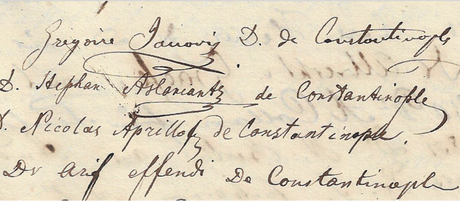 Gregoire Janovis D. de Constantinople
D. Stephan Aslaniantz de Constantinople
D. Nicolas Aprilloff de Constantinople.
Dr Arif effendi De Constantinople